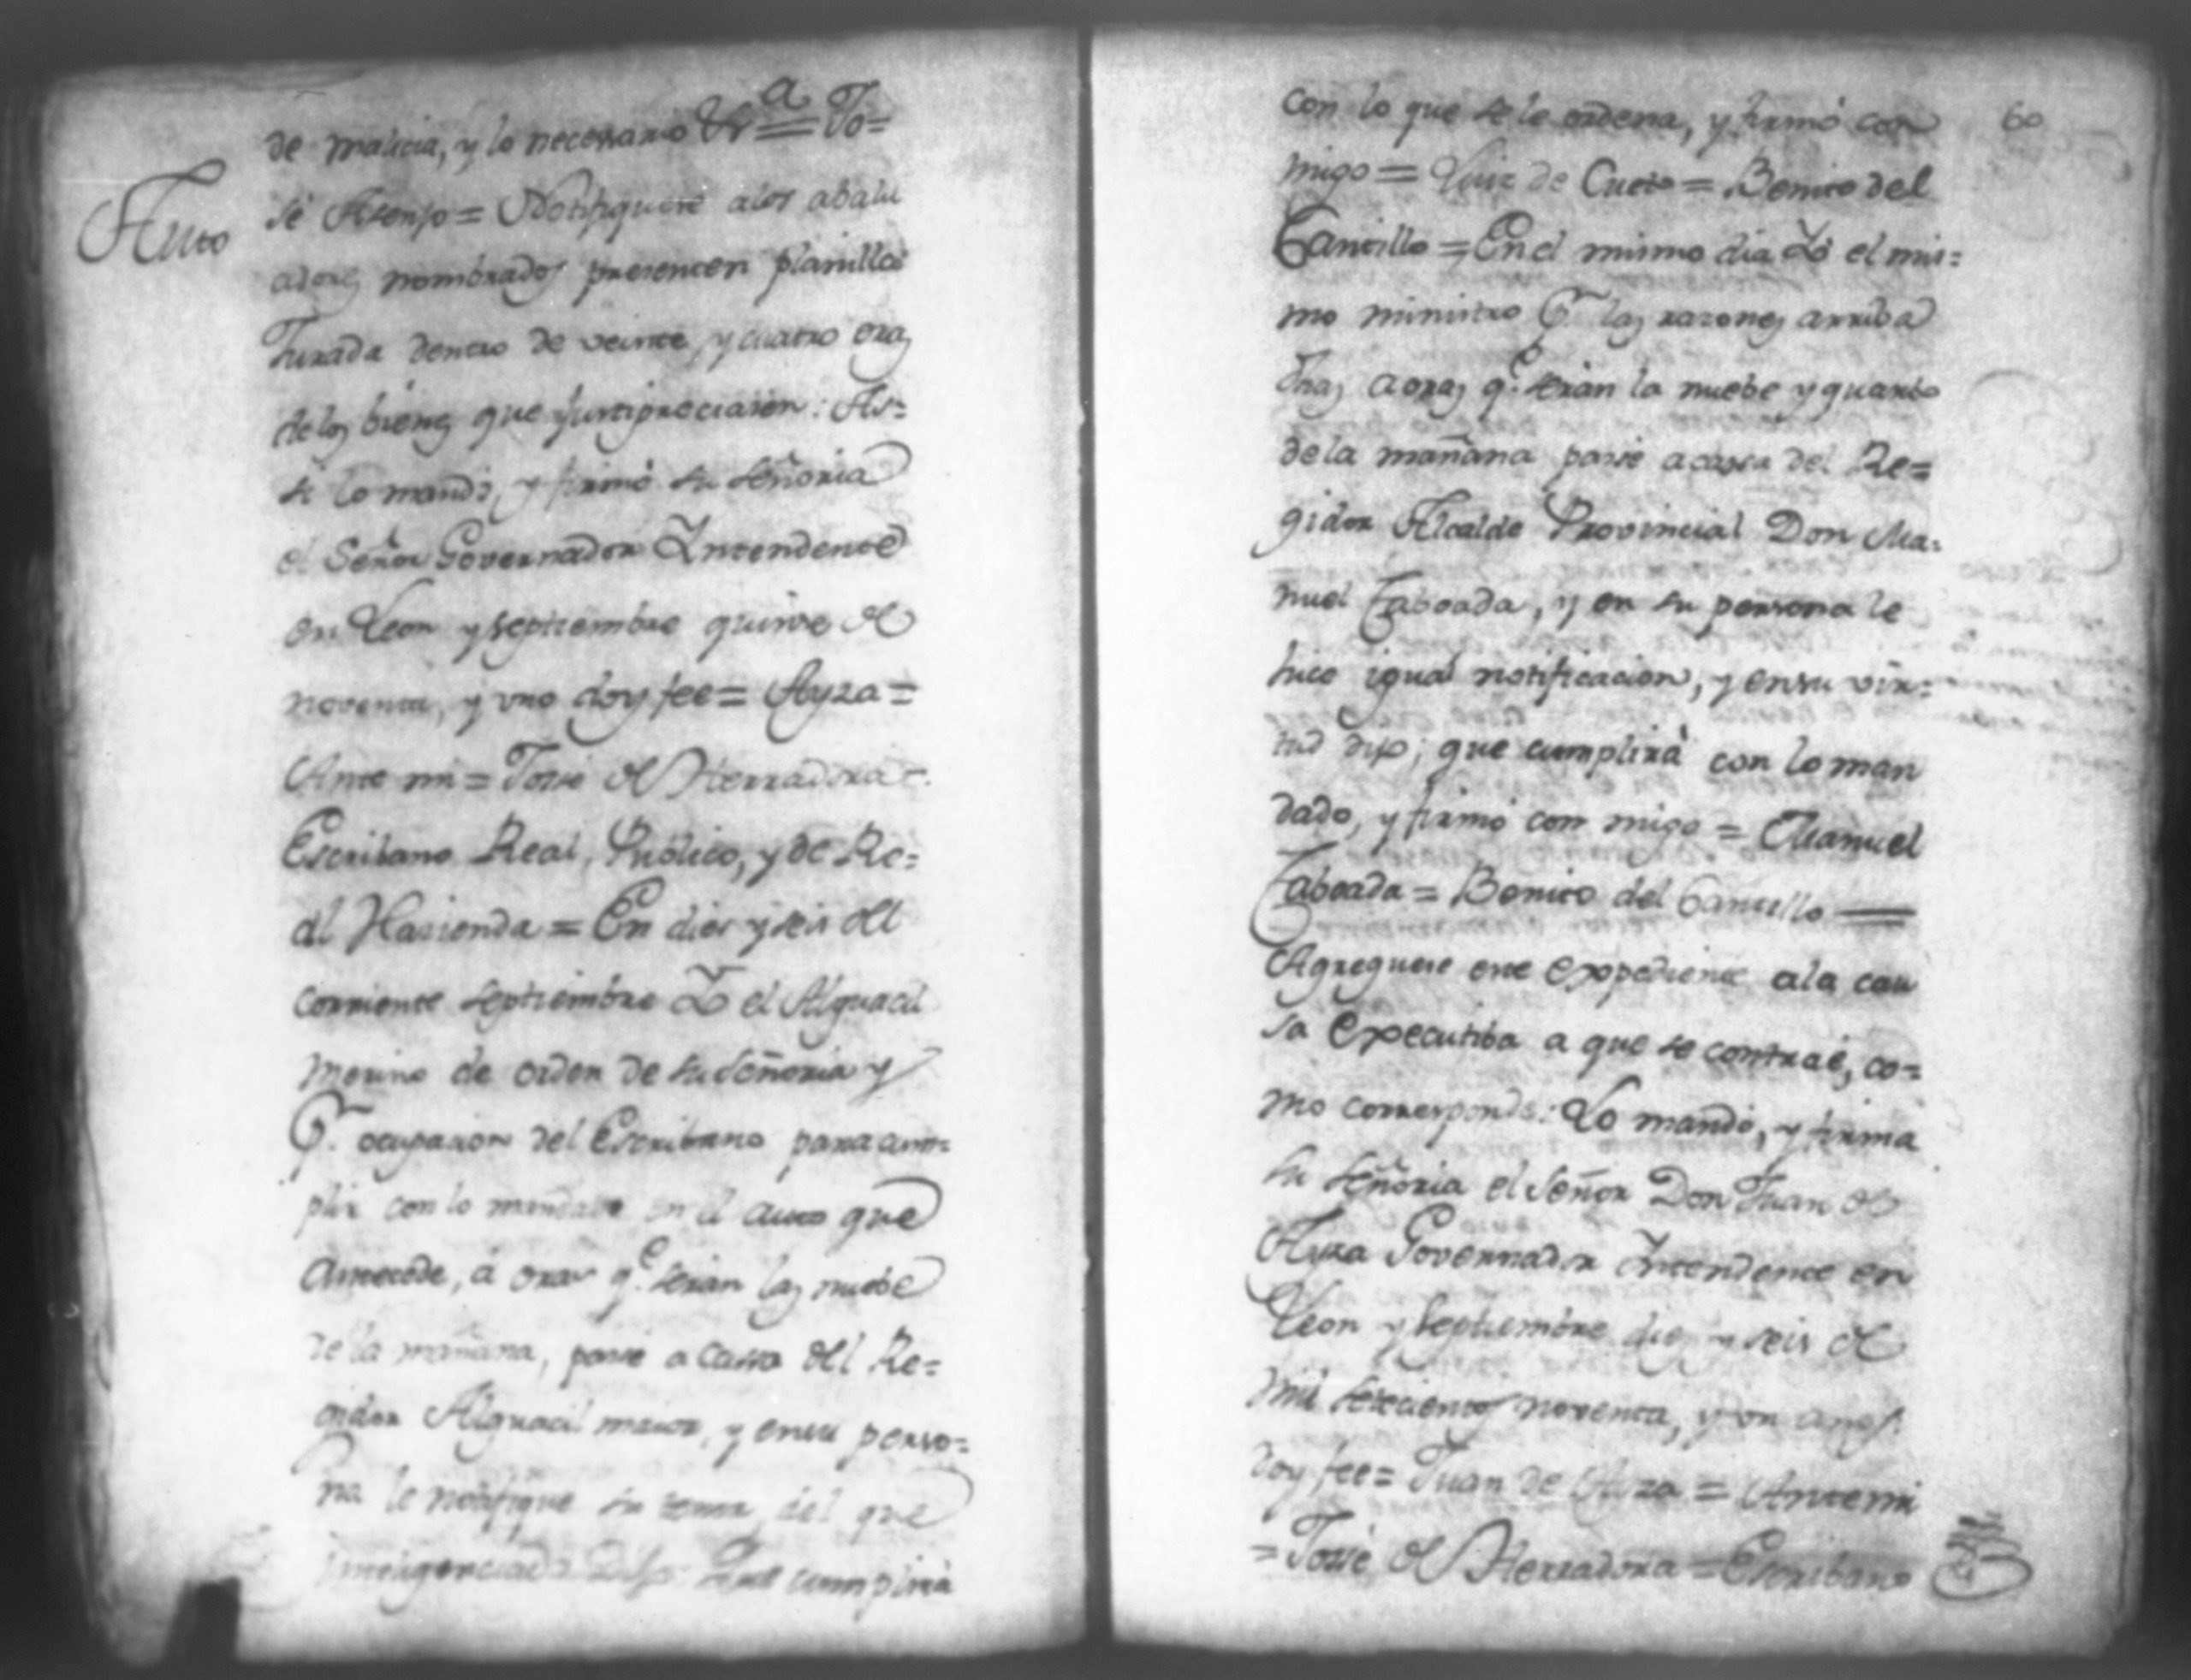 de malicia, y lo necessario &a = Jo=
Auto
sé Asenjo = Notifiquese alos abalu
adores nombrados presenten planilla
Jurada dentro de veinte, y cuatro oras
delos bienes que Justipreciaron: As=
si lo mandó, y firmó su señoria
el Señor Governador Yntendente
en Leon y septiembre quinse de
noventa, y uno doy fee = Ayza =
Ante mi = José de Herradora =
Escribano Real, Publico, y de Re=
al Hasienda = En dies y seis del
corriente septiembre Yo el Alguacil
merino de orden de su señoria y
Pr. ocupasion del Escribano para cum=
plir con lo mandado en el auto que
antecede, á oras qe. serian las nuebe
de la mañana, pasé a cassa del Re=
gidor Alguacil maior, y ensu perso=
na le notifiqué su tenor, del que
inteligenciado Dixo: Que cumplirá
60
con lo que se le ordena, y firmó con
migo = Luiz de Cueto = Benito del
Cantillo = En el mismo dia Yo el mis=
mo ministro Pr. las razones arriba
dhas a oras qe. serian la nuebe y quarto
dela mañana pasé a cassa del Re=
gidor Alcalde Provincial Don Ma=
nuel Taboada, y en su persona le
hice igual notificacion, y ensu vir=
tud dixo; que cumplirá con lo man
dado, y firmó con migo = Manuel
Taboada = Benito del Cantillo =
Agreguese este expediente ala cau
sa Executiba a que se contraé, co=
mo corresponde: Lo mandó, y firma
su señoria el Señor Don Juan de
Ayza Governador Yntendente en
Leon y Septiembre dies y seis de
mil setecientos noventa, y un años:
doy fee = Juan de Ayza = Antemi
= José de Herradora = Escribano